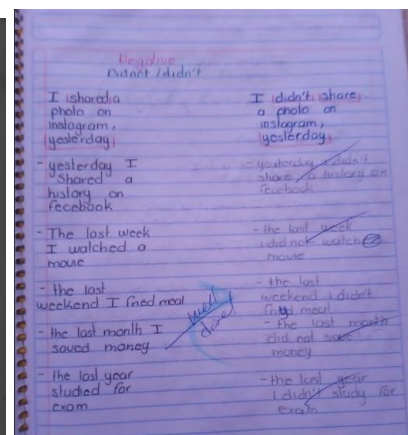 Negative
Didnot / didn't
I shared a
photo on
instagram,
yesterday
- yesterday I
Shared a
history on
fecebook
- The last week
I watched a
movie
- the last
weekend I fried meal
- the last month I
saved money
- the last year
studied for
exam
I didn't share
a photo on
instagram,
yesterday
- yesterday I didn't
share a history on
fecebook
- the last week
i did not watch
movie
- the last
weekend i didn't
meal
- the last month
did not
money
- the last year
I didn't study for
exam
well
done!